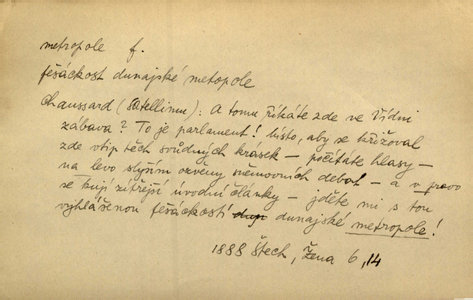 metropole f.
fešáckost dunajské metopole
Chaussard (Stellinu): A tomu říkáte zde ve Vídni
zábava? To je parlament! Místo, aby se křižoval
zde vtip těch svůdných krásek – počítáte hlasy –
na levo slyším ozvěny sněmovních debat – a v pravo
se kují zítřejší úvodní články – jděte mi s tou
vyhlášenou fešáckostí dunajské metropole!
1888 Štech, Žena 6, 14